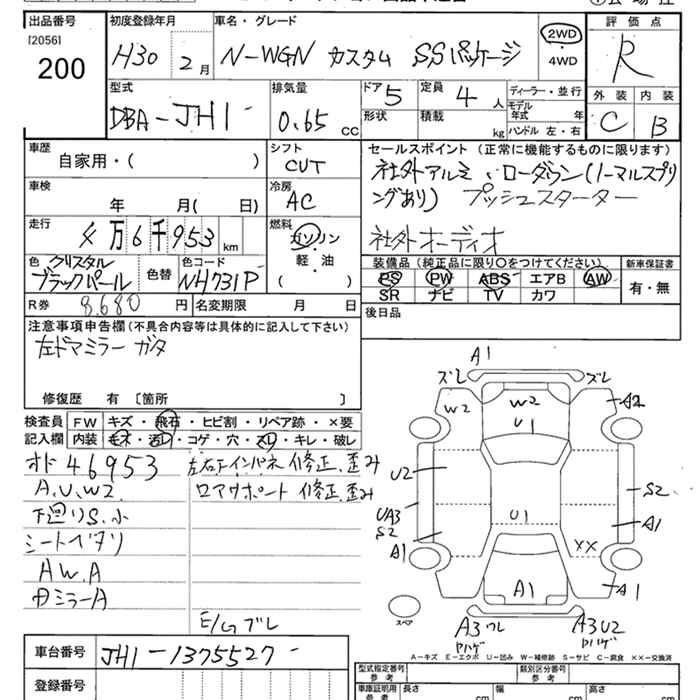 出品番号 初度登録年月 車名・グレード 評価点
[2056]
200 H30 2月 N-WGN カスタム SSパッケージ 2WD・4WD R
型式 排気量 ドア 定員 ディーラー・並行 外装 内装
DBA-JH1 0.65 CC 5 4人 モデル年式 年 C B
形状 積載 kg ハンドル 左・右
車歴 シフト セールスポイント (正常に機能するものに限ります)
自家用・( ) CVT 社外アルミ、ローダウン(ノーマルスプリ
車検 冷房 ングあり) プッシュスターター
年 月( 日) AC
走行 燃料 社外オーディオ
4万6千953km ガソリン
軽・油
( )
色 クリスタルブラックパール 色替 色コード NH731P
装備品 (純正品に限り○をつけてください) 新車保証書
PS PW ABS エアB AW 有・無
SR ナビ TV カワ
R券 8,680円 名変期限 月 日 後日品
注意事項申告欄 (不具合内容等は具体的に記入して下さい)
左ドアミラー ガタ
修復歴 有 〔箇所 〕
検査員記入欄 FW キズ・飛石・ヒビ割・リペア跡・×要
内装 モケ・汚レ・コゲ・穴・スレ・キレ・破レ
オド 46953 左右下インパネ修正、歪み
A.U.W2. ロアサポート修正、歪み
下廻りS.小
シートヘタリ
AW.A
ドミラーA
E/Gブレ
A1
ズレ ズレ
W2 W2 A2
U1
U2
U1 S2
UA3
S2 A1
A1 XX
A1 A1
スペア
A3ワレ A3U2
ハゲ ハゲ
A=キズ E=エクボ U=凹み W=補修跡 S=サビ C=腐食 XX=交換済
車台番号 JH1-1375527
登録番号
型式指定番号 参考 類別区分番号 参考
車庫証明用 参考 長さ cm 幅 cm 高さ cm